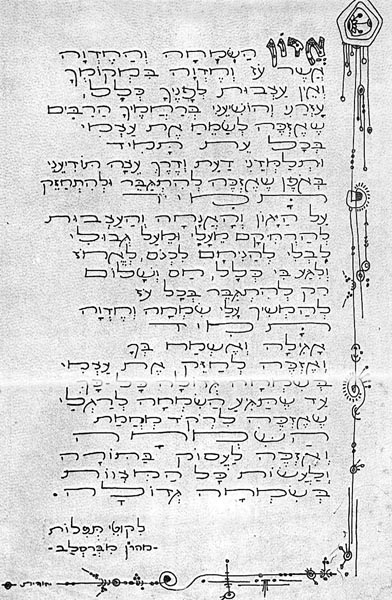 אדון השמחה והחדוה
אשר עז וחדוה במקומך
ואין עצבות לפניך כלל,
עזרני והושיעני ברחמיך הרבים
שאזכה לשמח את עצמי
בכל עת תמיד
ותלמדני דעת ודרך עצה תודיעני
באפן שאזכה להתגבר ולהתחזק
תמיד
על היגון והאנחה והעצבות
להרחיקם מעלי ומעל גבולי
לבלי להניחם לכנס, לאחז
ולגע בי כלל, חס ושלום
רק להתגבר בכל עז
להמשיך עלי שמחה וחדוה
תמיד
אגילה ואשמח בך
ואזכה לחזק את עצמי
בשמחה גדולה כל כך
עד שתגיע השמחה לרגלי
שאזכה לרקד מחמת
השמחה
ואזכה לעסוק בתורה
ולעשות כל המצוות
בשמחה גדולה.
לקוטי תפלות
-מהרן מברסלב-